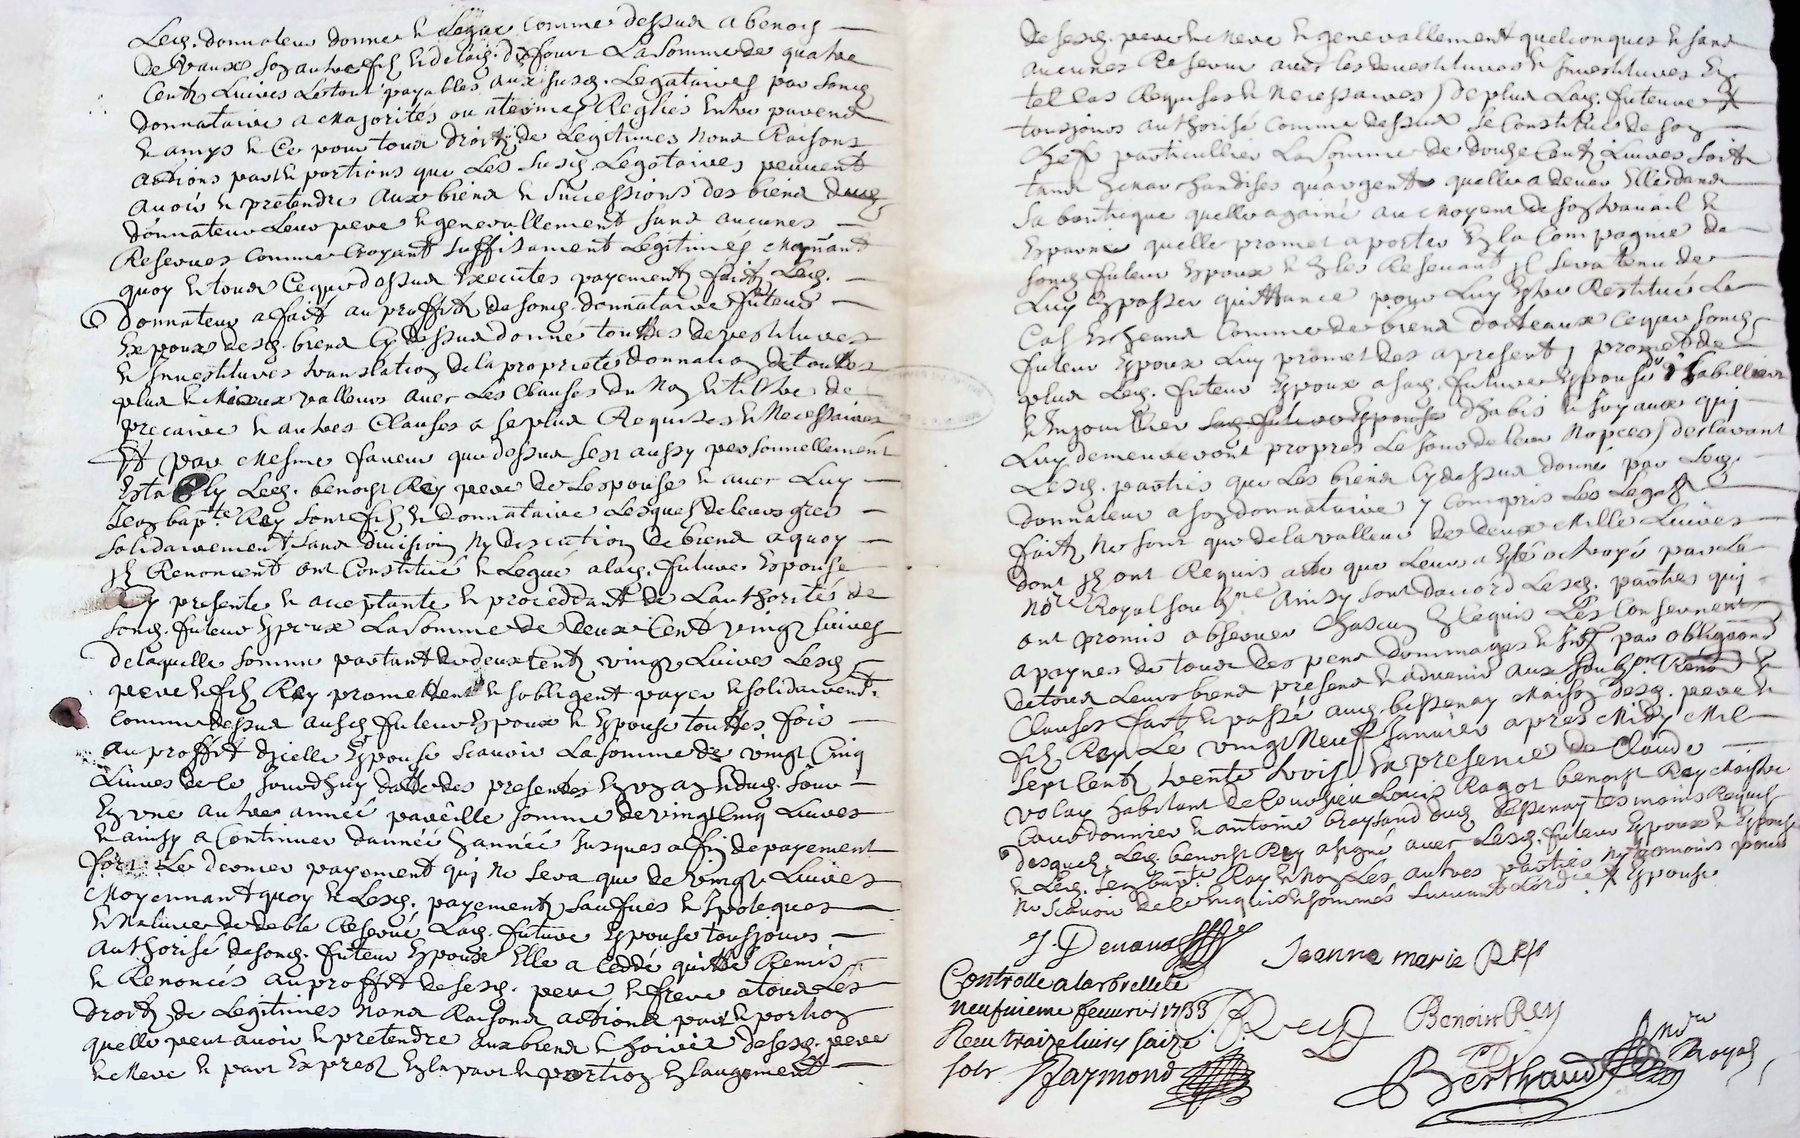 Led. donnateur donne et legue comme dessus a benoist
Devaux son autre fils et delad. dufour la somme de quatre
Cents Livres Le tout payables aux susd. Legataires par sond.
donnataire a Majorités ou atermes Reglés entre parens
et amys et Ce pour tous droits de Legitimes noms Raisons
actions part et portions que Les susd. Legataires peuvent
avoir et pretendre aux biens et successions des biens dud.
donnateur Leur pere et generallement sans aucunes
Reserves Comme Croyant suffisament Legitimés Moyenant
quoy et tout Cequedessus Executés payements faits Led.
donnateur a fait au proffit de sond. donnataire futeur
Expoux desd. biens Cy dessus donné touttes devestitures
et Investitures translation de la proprieté donnation de touttes
plus et Mieux valleurs avec Les Clauses du Nom et tiltre de
precaire et autres Clauses a seplus Requises et Necessaires
Et par Mesme faveur que dessus sest aussy personnellement
Establly Led. benoist Rey pere de Lespouse et avec Luy
Jean bapte. Rey sont fils et donnataire Lesquels de leurs grés
solidairement sans division ny discution de biens aquoy
ils Renoncent ont Constitué et Legué a lad. future Espouse
Icy presente et acceptante et proceddant de Lauthorités de
sond. futeur Epoux La somme de deux Cent vingt Livres
de laquelle somme partant de deux Cents vingt Livres Lesd.
pere et fils Rey promettent et sobligent payer et solidairemt.
comme dessus ausd. futeur Epoux et Epouse touttes fois
au proffit dicelle Epouse scavoir La somme de vingt Cinq
Livres de Ce Jourdhuy datte des presentes En un an dud. Jour
En une autres année pareille somme de vingt Cinq Livres
et ainsy a Continuer dannéé En année Jusques a fin de payement
fors Le dernier payement qui ne sera que de vingt Livres
Moyennant quoy et Lesd. payements saufues et Ipoteques
et Nature de deble Reservé Lad. future Epouse tousjours
authorisé de sond. futeur Epoux Elle a Ceddé quitté Remis
et Renoncés au proffit de sesd. pere et frere a tous Les
droits de Legitimes Noms Raisons actions part et portion
quelle peut avoir et pretendre aux biens et hoirie de sesd. pere
et Mere et par Exprest En la part et portion En laugement
de sesd. pere et Mere et generallement quelconques et sans
aucunes Reserves avec les devestitures et Investitures En
tel cas Requises et Necessaires / de plus Lad. futeure
tousjours authorisé Comme dessus se Constitue de son
Chef particullier La somme de douze Cents Livres soit
tant En marchandises quargent quelle a devers Elle dans
sa boutique quelle a gainé au Moyent de son travail et
Esparnie quelle promet aporter En la Compagnie de
sond. futeur Epoux et En les Resevant il sera tenu de
Luy En passer quittance pour Luy Estre Restitué Le
Cas Escheant Comme de biens dotteaux Ceque sond.
futeur Epoux Luy promet des apresent / promet de
plus Led. futeur Epoux a sad. future Epouse d'habillier
et Enjouillier dhabis et Joyaux qui
Luy demeureront propres Le Jour de leur Nopces / declarant
Lesd. parties que Les biens Cy dessus donné par Led.
donnateur a son donnataire y Compris Les Legats
faits ne sont que de la valleur de deux Mille Livres
dont ils ont Requis acte que Leur a Esté octroyé par Le
Nore. Royal soubsne. Ainsy sont dacord Lesd. parties qui
ont promis observer Chascun En lequis Les Conservent
apaynes de tous despens dommages et Ints. par obligations
de tous Leurs biens presens et advenir aux soubsons Renon. et
Clauses fait et passé aud. bessenay Maison desd. pere et
fils Rey Le vingt Neuf Janvier apres Midy Mil
sept Cents trente trois En presence de Claude
volay habitant de Courzieu Louis Ragot benoist Rey Maistre
Courdonnier et antoine braysand dud. bessenay tesmoins Requis
desquels Led. benoist Rey a signé avec Lesd. futeur Epoux et Epouse
et Led. Jean bapte. Rey et Non Les autres parties ny temoins pour
ne scavoir de Ce Enquis et sommés suivant Lord. ce Epouse
J. Devaux
Jeanne marie Rey
Controlle a larbrelle le
neufuieme feuurier 1733
Receu traize liures saize
sols Raymond
J. Rey
Benoist Rey
Berthaud Nore. Royal